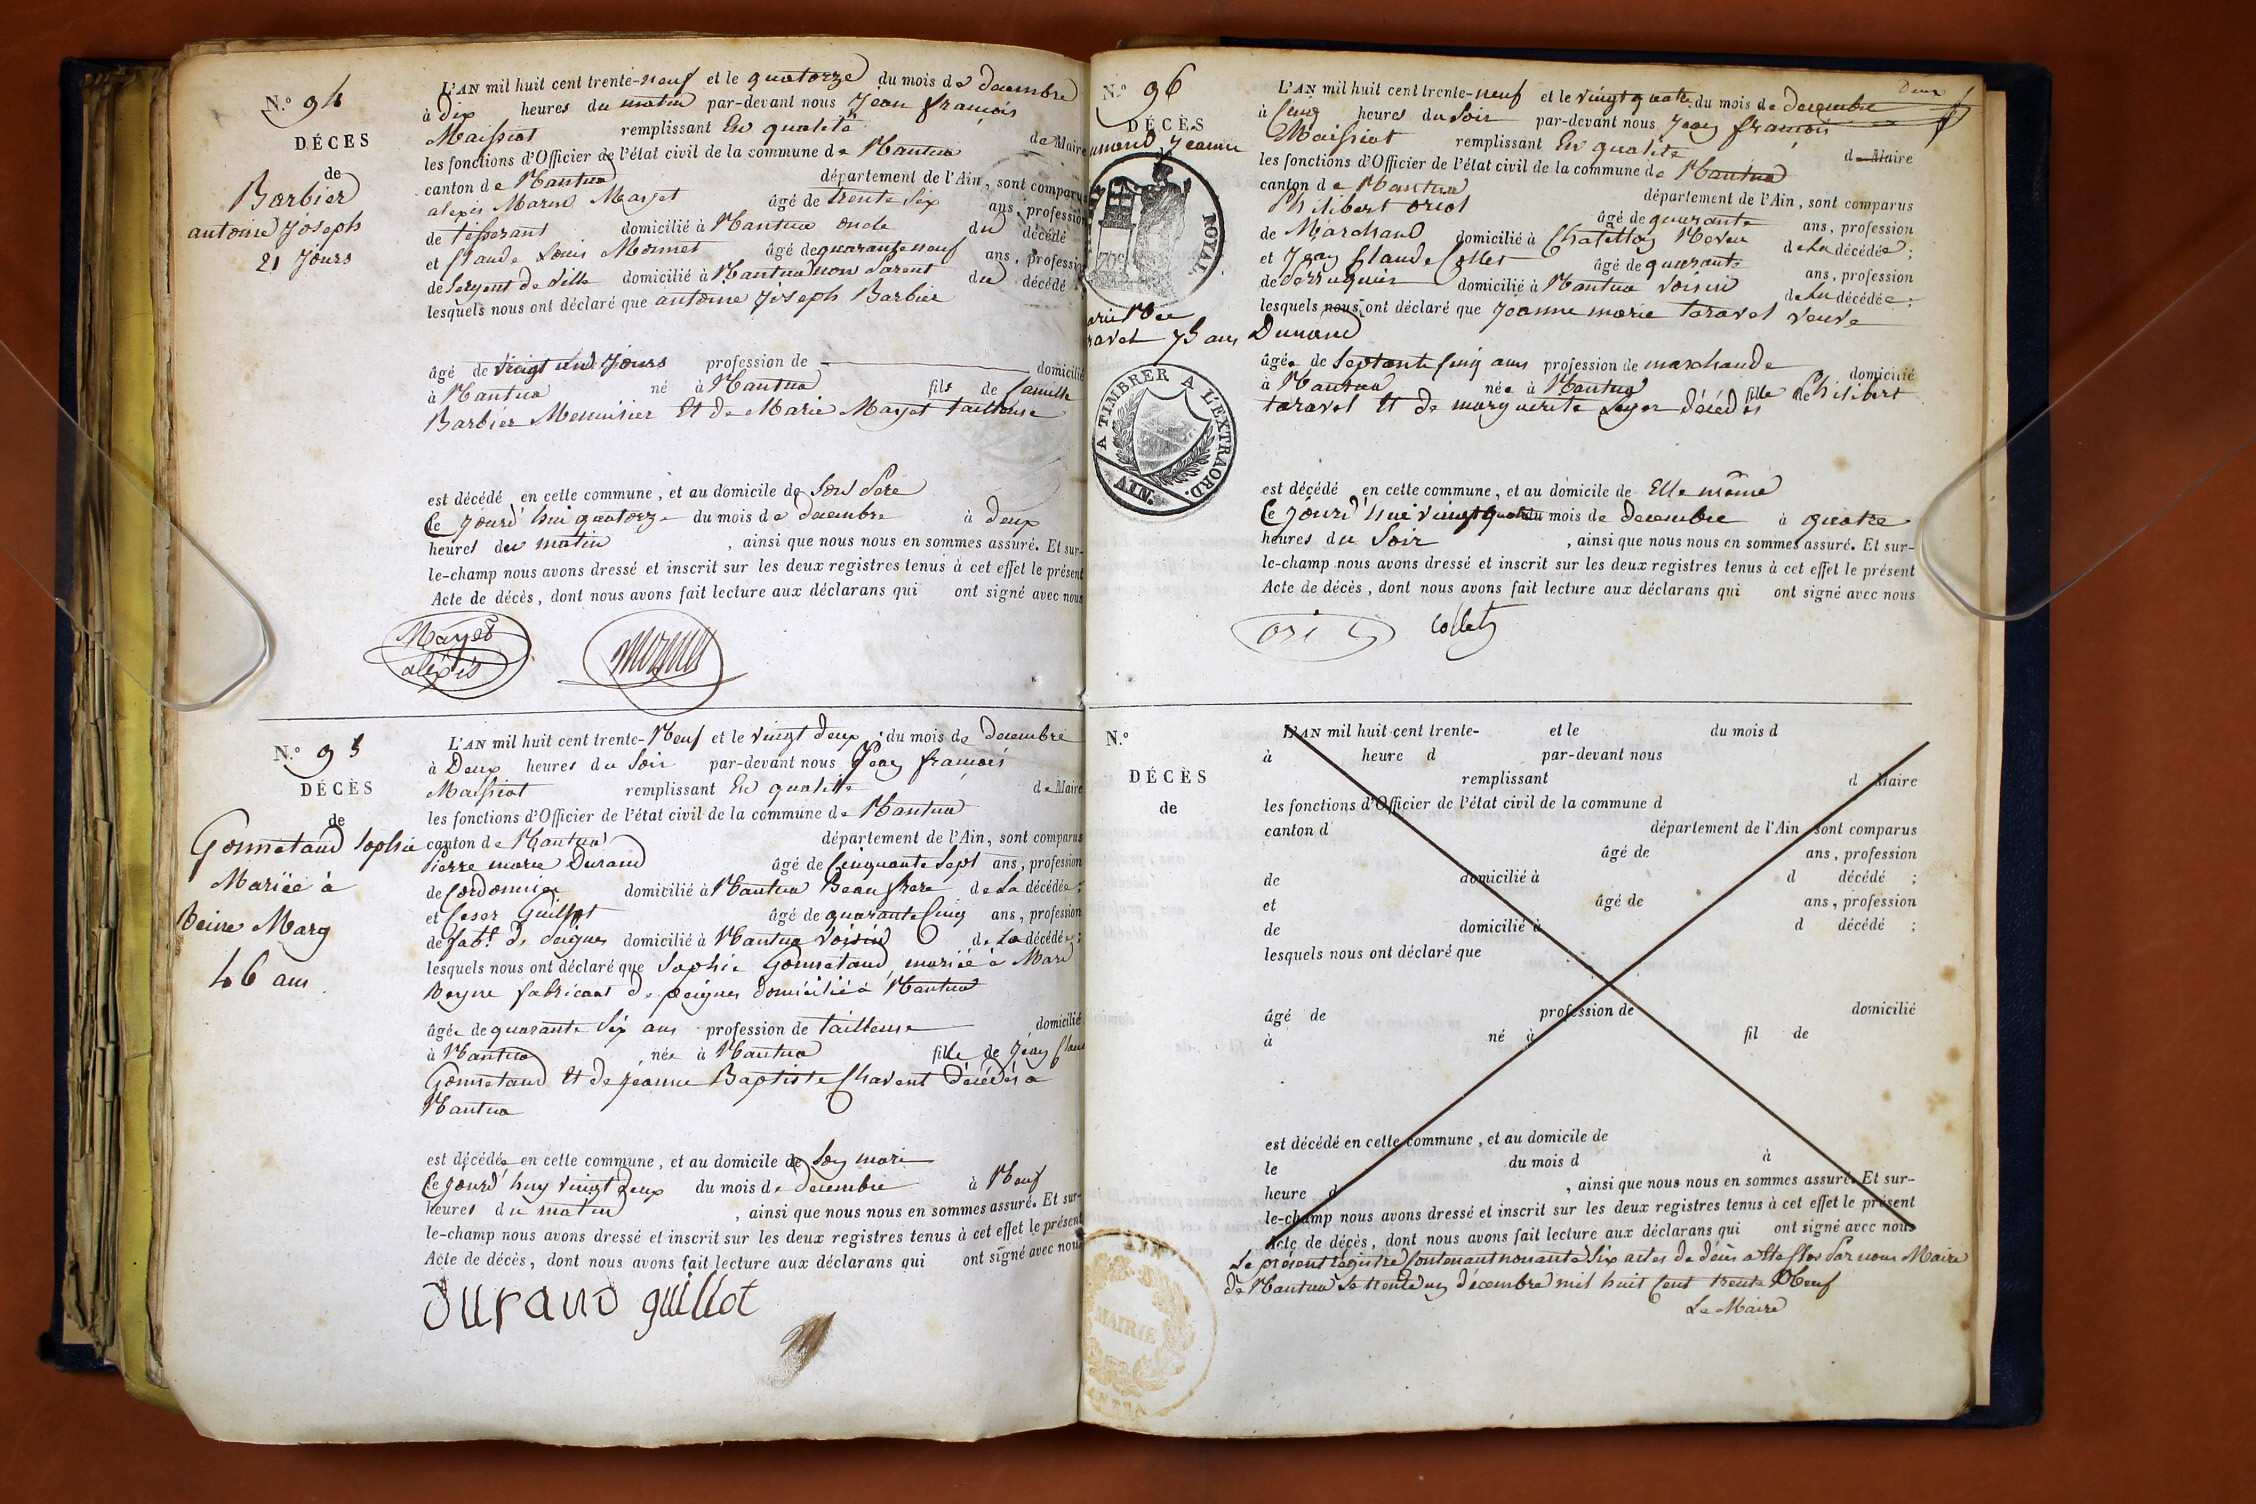 N.º 94
DÉCÈS
de
Barbier
antoine Joseph
21 Jours
L'AN mil huit cent trente-neuf et le quatorze du mois de decembre
à Dix heures du matin par-devant nous Jean françois
Maissiat remplissant En qualité de Maire
les fonctions d'Officier de l'état civil de la commune de Nantua
canton de Nantua département de l'Ain, sont comparus
alexis Marie Mayet âgé de trente Six ans, profession
de tisserant domicilié à Nantua oncle du décédé
et Claude Louis Monnet âgé de quarante neuf ans, profession
de Sergent de ville domicilié à Nantua non Parent du décédé
lesquels nous ont déclaré que antoine Joseph Barbier
âgé de vingt un Jours profession de domicilié
à Nantua né à Nantua fils de Camille
Barbier Menuisier Et de Marie Mayet tailleuse
est décédé en cette commune, et au domicile de son Pere
Ce Jourd'hui quatorze du mois de decembre à deux
heures du matin, ainsi que nous nous en sommes assuré. Et sur-
le-champ nous avons dressé et inscrit sur les deux registres tenus à cet effet le présent
Acte de décès, dont nous avons fait lecture aux déclarans qui ont signé avec nous
Mayet
alexis
monnet
N.º 95
DÉCÈS
de
Gonnetand Sophie
Mariée à
Beine Marc
46 ans
L'AN mil huit cent trente-Neuf et le vingt deux du mois de decembre
à Deux heures du Soir par-devant nous Jean françois
Maissiat remplissant En qualité de Maire
les fonctions d'Officier de l'état civil de la commune de Nantua
canton de Nantua département de l'Ain, sont comparus
Pierre marie Durand âgé de Cinquante Sept ans, profession
de Cordonnier domicilié à Nantua Beau frere de La décédée;
et Cesar Guillot âgé de quarante Cinq ans, profession
de fabt. de Peignes domicilié à Nantua Voisin de La décédée;
lesquels nous ont déclaré que Sophie Gonnetand mariée à Marc
Beyne fabricant de peignes domicilié à Nantua
âgée de quarante Six ans profession de tailleuse domicilié
à Nantua née à Nantua fille de Jean Claude
Gonnetand Et de Jeanne Baptiste Chavent décédés a
Nantua
est décédée en cette commune, et au domicile de Son mari
Ce Jourd'huy vingt deux du mois de decembre à Neuf
heures du matin, ainsi que nous nous en sommes assuré. Et sur-
le-champ nous avons dressé et inscrit sur les deux registres tenus à cet effet le présent
Acte de décès, dont nous avons fait lecture aux déclarans qui ont signé avec nous
Durand guillot
N.º 96
DÉCÈS
Jeanne
marie Née
75 ans
ROYAL
A TIMBRER A L'EXTRAORD.
AIN.
Deux
L'AN mil huit cent trente-neuf et le vingt quatre du mois de decembre
à Cinq heures du Soir par-devant nous Jean françois
Maissiat remplissant En qualité de Maire
les fonctions d'Officier de l'état civil de la commune de Nantua
canton de Nantua département de l'Ain, sont comparus
Philibert oriol âgé de quarante ans, profession
de Marchand domicilié à Chatillon Neveu de La décédée;
et Jean Claude Collet âgé de quarante ans, profession
de Perruquier domicilié à Nantua Voisin de La décédée;
lesquels nous ont déclaré que Jeanne marie taravel veuve
Dunand
âgée de Septante Cinq ans profession de marchande domicilié
à Nantua née à Nantua fille de Philibert
taravel Et de marguerite décédés
est décédé en cette commune, et au domicile de Elle même
Ce Jourd'hui vingt quatre du mois de decembre à quatre
heures du Soir, ainsi que nous nous en sommes assuré. Et sur-
le-champ nous avons dressé et inscrit sur les deux registres tenus à cet effet le présent
Acte de décès, dont nous avons fait lecture aux déclarans qui ont signé avec nous
Collet
N.º
DÉCÈS
de
L'AN mil huit cent trente- et le du mois d
à heure d par-devant nous
remplissant d Maire
les fonctions d'Officier de l'état civil de la commune d
canton d département de l'Ain, sont comparus
âgé de ans, profession
de domicilié à d décédé;
et âgé de ans, profession
de domicilié à d décédé;
lesquels nous ont déclaré que
âgé de profession de domicilié
à né à fil de
est décédé en cette commune, et au domicile de
le du mois d à
heure d, ainsi que nous nous en sommes assuré. Et sur-
le-champ nous avons dressé et inscrit sur les deux registres tenus à cet effet le présent
Acte de décès, dont nous avons fait lecture aux déclarans qui ont signé avec nous
Le présent registre Contenant nonante Six actes de décès a été Clos Par nous Maire
de Nantua Le trente un décembre mil huit Cent trente Neuf
Le Maire
MAIRIE